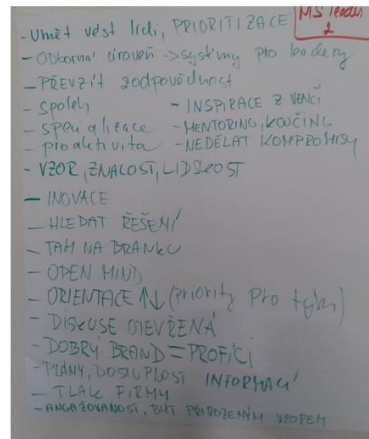 MS leader
2
- Umět vést lidi, PRIORITIZACE
- Odborná úroveň -> systémy pro leadery
- PŘEVZÍT zodpovědnost
- spoleh - INSPIRACE Z VENČÍ
- specializace - MENTORING, KOUČING
- proaktivita - NEDĚLAT KOMPROMISY
- VZOR, ZNALOST, LIDSKOST
- INOVACE
- HLEDAT ŘEŠENÍ
- TAH NA BRANKU
- OPEN MIND
- ORIENTACE ↑↓ (priority pro tým)
- DISKUSE OTEVŘENÁ
- DOBRÝ BRAND = PROFÍCI
- PLÁNY, DOSTUPLOST INFORMACÍ
- TLAK FIRMY
- ANGAŽOVANOST, BÝT PŘIROZENÝM VZOREM